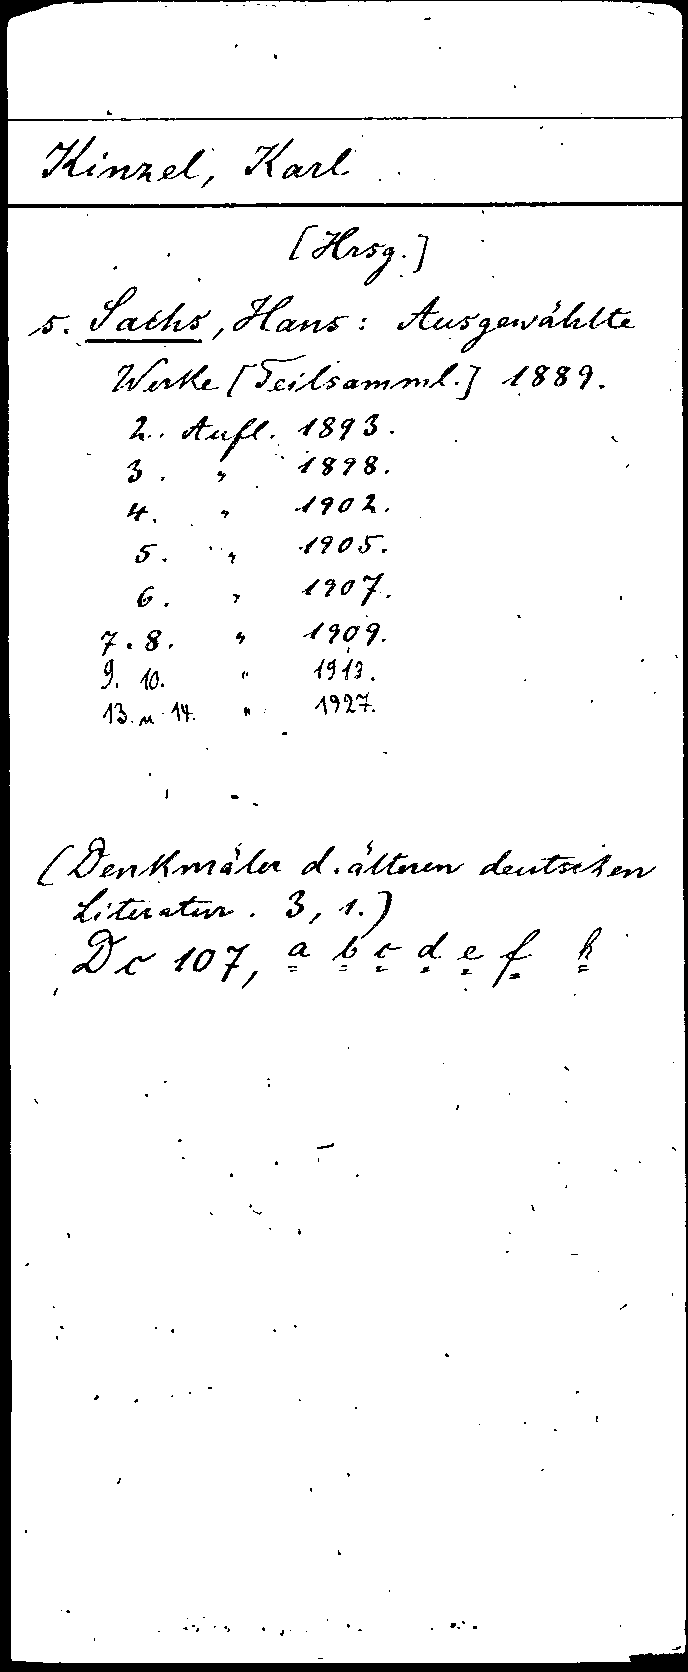 Kinzel, Karl
[Hrsg.]
s. Sachs, Hans: Ausgewählte
Werke [Teilsamml.] 1889.
2. Aufl. 1893.
3. " 1898.
4. " 1902.
5. " 1905.
6. " 1907.
7. 8. " 1909.
9. 10. " 1913.
13. u 14. " 1927.
(Denkmäler d. älteren deutschen
Literatur. 3, 1.)
Dc 107, a b c d e f h